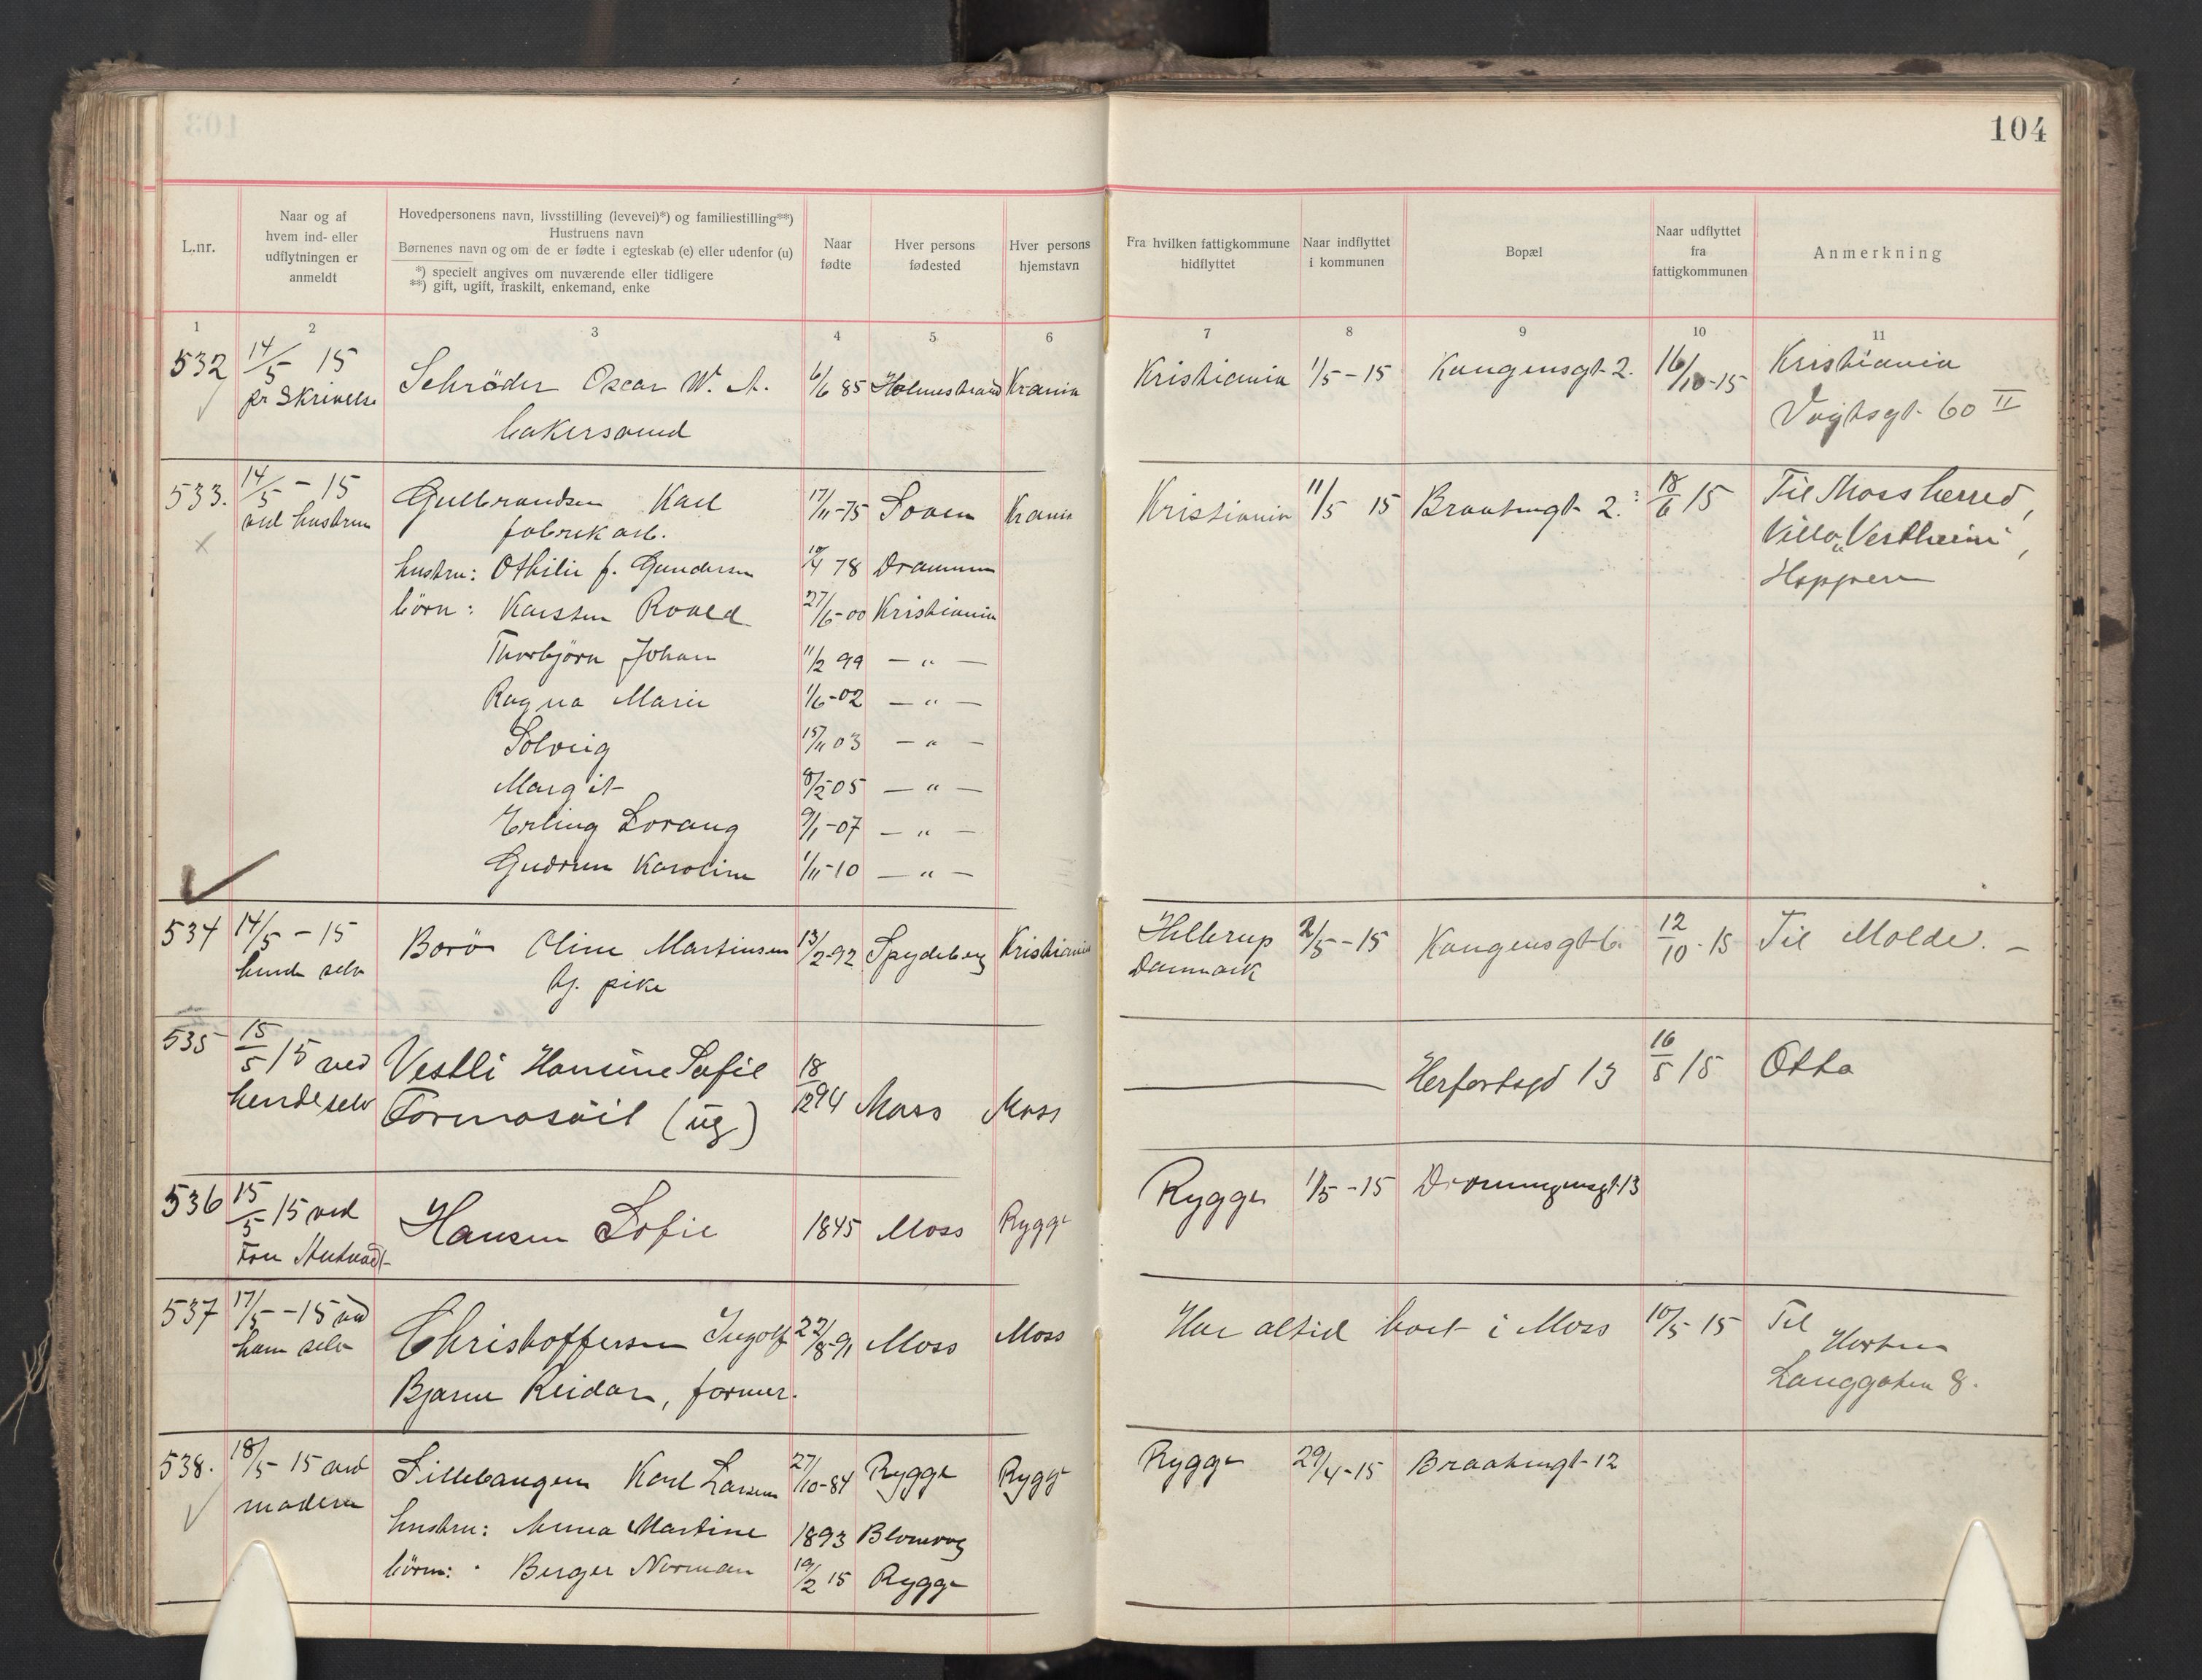 104
L.nr.
Naar og af
hvem ind- eller
udflytningen er
anmeldt
Hovedpersonens navn, livsstilling (levevei)*) og familiestilling**)
Hustruens navn
Børnenes navn og om de er fødte i egteskab (e) eller udenfor (u)
*) specielt angives om nuværende eller tidligere
**) gift, ugift, fraskilt, enkemand, enke
Naar
fødte
Hver persons
fødested
Hver persons
hjemstavn
Fra hvilken fattigkommune
hidflyttet
Naar indflyttet
i kommunen
Bopæl
Naar udflyttet
fra
fattigkommunen
Anmerkning
1 2 3 4 5 6 7 8 9 10 11
532 14/5 15 Schröder Oscar W. A. 6/6 85 Holmestrand Krania Kristiania 1/5-15 Kongensgt 2. 16/10-15 Kristiania
pr Skrivelse bakersvend Vogtsgt. 60 II
533. 14/5-15 Gulbrandsen Karl 17/11-75 Krania Kristiania 11/5 15 Braatengt 2. 18/6 15 Til Moss herred,
ved hustru fabrikarb. Villa „Vestheim",
hustru: Othilie f. Gundersen 78 Drammen Hoppern
børn: Karsten Roald 27/6-00 Kristiania
Thorbjørn Johan 11/2 99 — " —
Ragna Marie 1/6-02 — " —
Solveig 15/11 03 — " —
Margit 8/2 05 — " —
Erling Lorang 9/1-07 — " —
Gudrun Karoline 1/11-10 — " —
534 14/5-15 Borø Oline Martinsen 13/2-92 Spydeberg Kristiania Hellerup 2/5-15 Kongensgt 6 12/10-15 Til Molde. —
hende selv tj. pike Danmark
535 15/5 15 ved Vestli Hansine Sofie 18/12 94 Moss Moss — Herfortsgd 13 16/5 15 Otta
hende selv Tormosöil (ug)
536 15/5 15 ved Hansen Sofie 1845 Moss Rygge Rygge 1/5-15 Dronningensgt 13
Fru
537 17/5-15 ved Christoffersen Ingolf 22/8-91 Moss Moss Har altid boet i Moss 10/5 15 Til
ham selv Bjarne Reidar, former. Horten
Langgaten 8.
538. 18/5 15 ved Lillebaugen Karl Larsen 27/10-84 Rygge Rygge Rygge 29/4-15 Braatengt 12
moderen hustru: Anna Martine 1893
børn: Berger Norman 19/2 15 Rygge